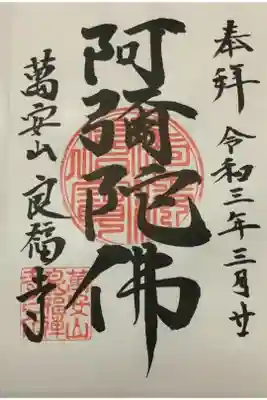 奉拜 令和三年三月廿
阿彌陀佛
萬安山 良福寺
萬安山
良福禅
寺